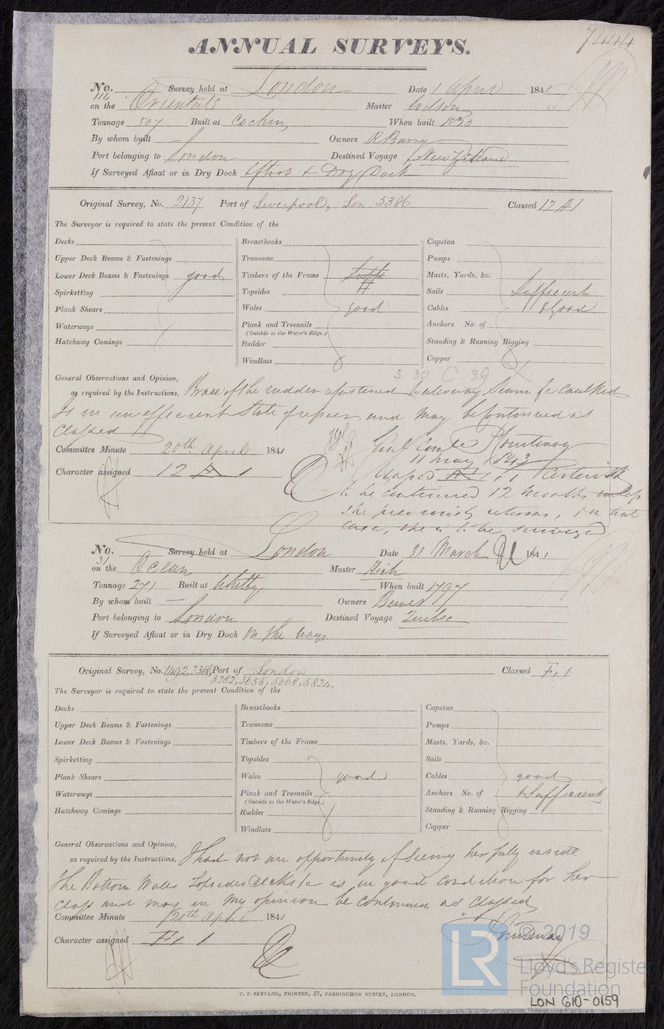 7444
ANNUAL SURVEYS.
No. 116 Survey held at London Date 1 April 1841
on the Orientals Master Wilson
Tonnage 507 Built at Cochin When built 1830
By whom built Owners R Barry
Port belonging to London Destined Voyage New Zealand
If Surveyed Afloat or in Dry Dock Afloat & Dry Dock
Original Survey, No. 2137 Port of Liverpool, Lon. 3386 Classed 12 A 1
The Surveyor is required to state the present Condition of the
Decks Breasthooks Capstan
Upper Deck Beams & Fastenings Transoms Pumps
Lower Deck Beams & Fastenings good Timbers of the Frame Masts, Yards, &c.
Spirketting Topsides Sails Sufficient
Plank Shears Wales good Cables & Good
Waterways Plank and Treenails Anchors No. of
(Outside to the Water's Edge.)
Hatchway Comings Rudder Standing & Running Rigging
Windlass Copper
General Observations and Opinion,
as required by the Instructions. Brace of the rudder refastened Waterway Seam &c caulked
Is in an efficient State of repair and may be continued as
Classed
Committee Minute 20th April 1841
Character assigned 12 A 1
to be continued 12 months
she previously returns, in that
case, she is to be surveyed
No. 31 Survey held at London Date 31 March 1841
on the Ocean Master
Tonnage 271 Built at Whitby When built 1797
By whom built — Owners
Port belonging to London Destined Voyage Quebec
If Surveyed Afloat or in Dry Dock On the ways
Original Survey, No. 1492, 2318, Port of London Classed F. 1
3282, 3655, 5068, 5824,
The Surveyor is required to state the present Condition of the
Decks Breasthooks Capstan
Upper Deck Beams & Fastenings Transoms Pumps
Lower Deck Beams & Fastenings Timbers of the Frame Masts, Yards, &c.
Spirketting Topsides Sails
Plank Shears Wales good Cables good
Waterways Plank and Treenails Anchors No. of & Sufficient
(Outside to the Water's Edge.)
Hatchway Comings Rudder Standing & Running Rigging
Windlass Copper
General Observations and Opinion,
as required by the Instructions. I had not an opportunity of seeing her fully inside
The Bottom Wales Topsides Decks &c is in good Condition for her
Class and may in my opinion be continued as classed
Committee Minute 20th April 1841
Character assigned F. 1
C. F. SEYFANG, PRINTER, 57, FARRINGDON STREET, LONDON.
© 2019
LR
Lloyd's Register
Foundation
LON 610-0159